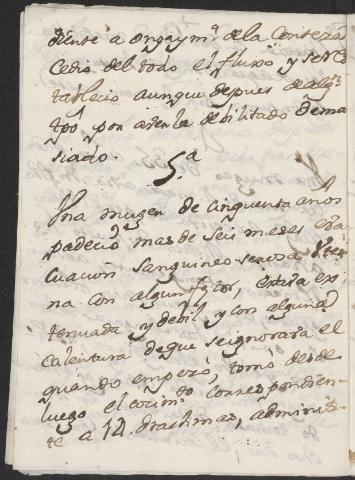 diente a onza y mª. de la Corteza
Cedio del todo el fluxo y se Res
tablecio aunque despues de algⁿ.
tpo, por averla debilitado dema
siado.
5ª
Una muger de cinquenta años
padecio mas de seis meses eva
cuacion sanguineo serosa Uter
na con algun fetor, estava ex
tenuada y debil, y con alguna
calentura de que se ignorava el
quando empezó, tomó desde
luego el cocimto. correspondien
te a 12 drachmas, adminis